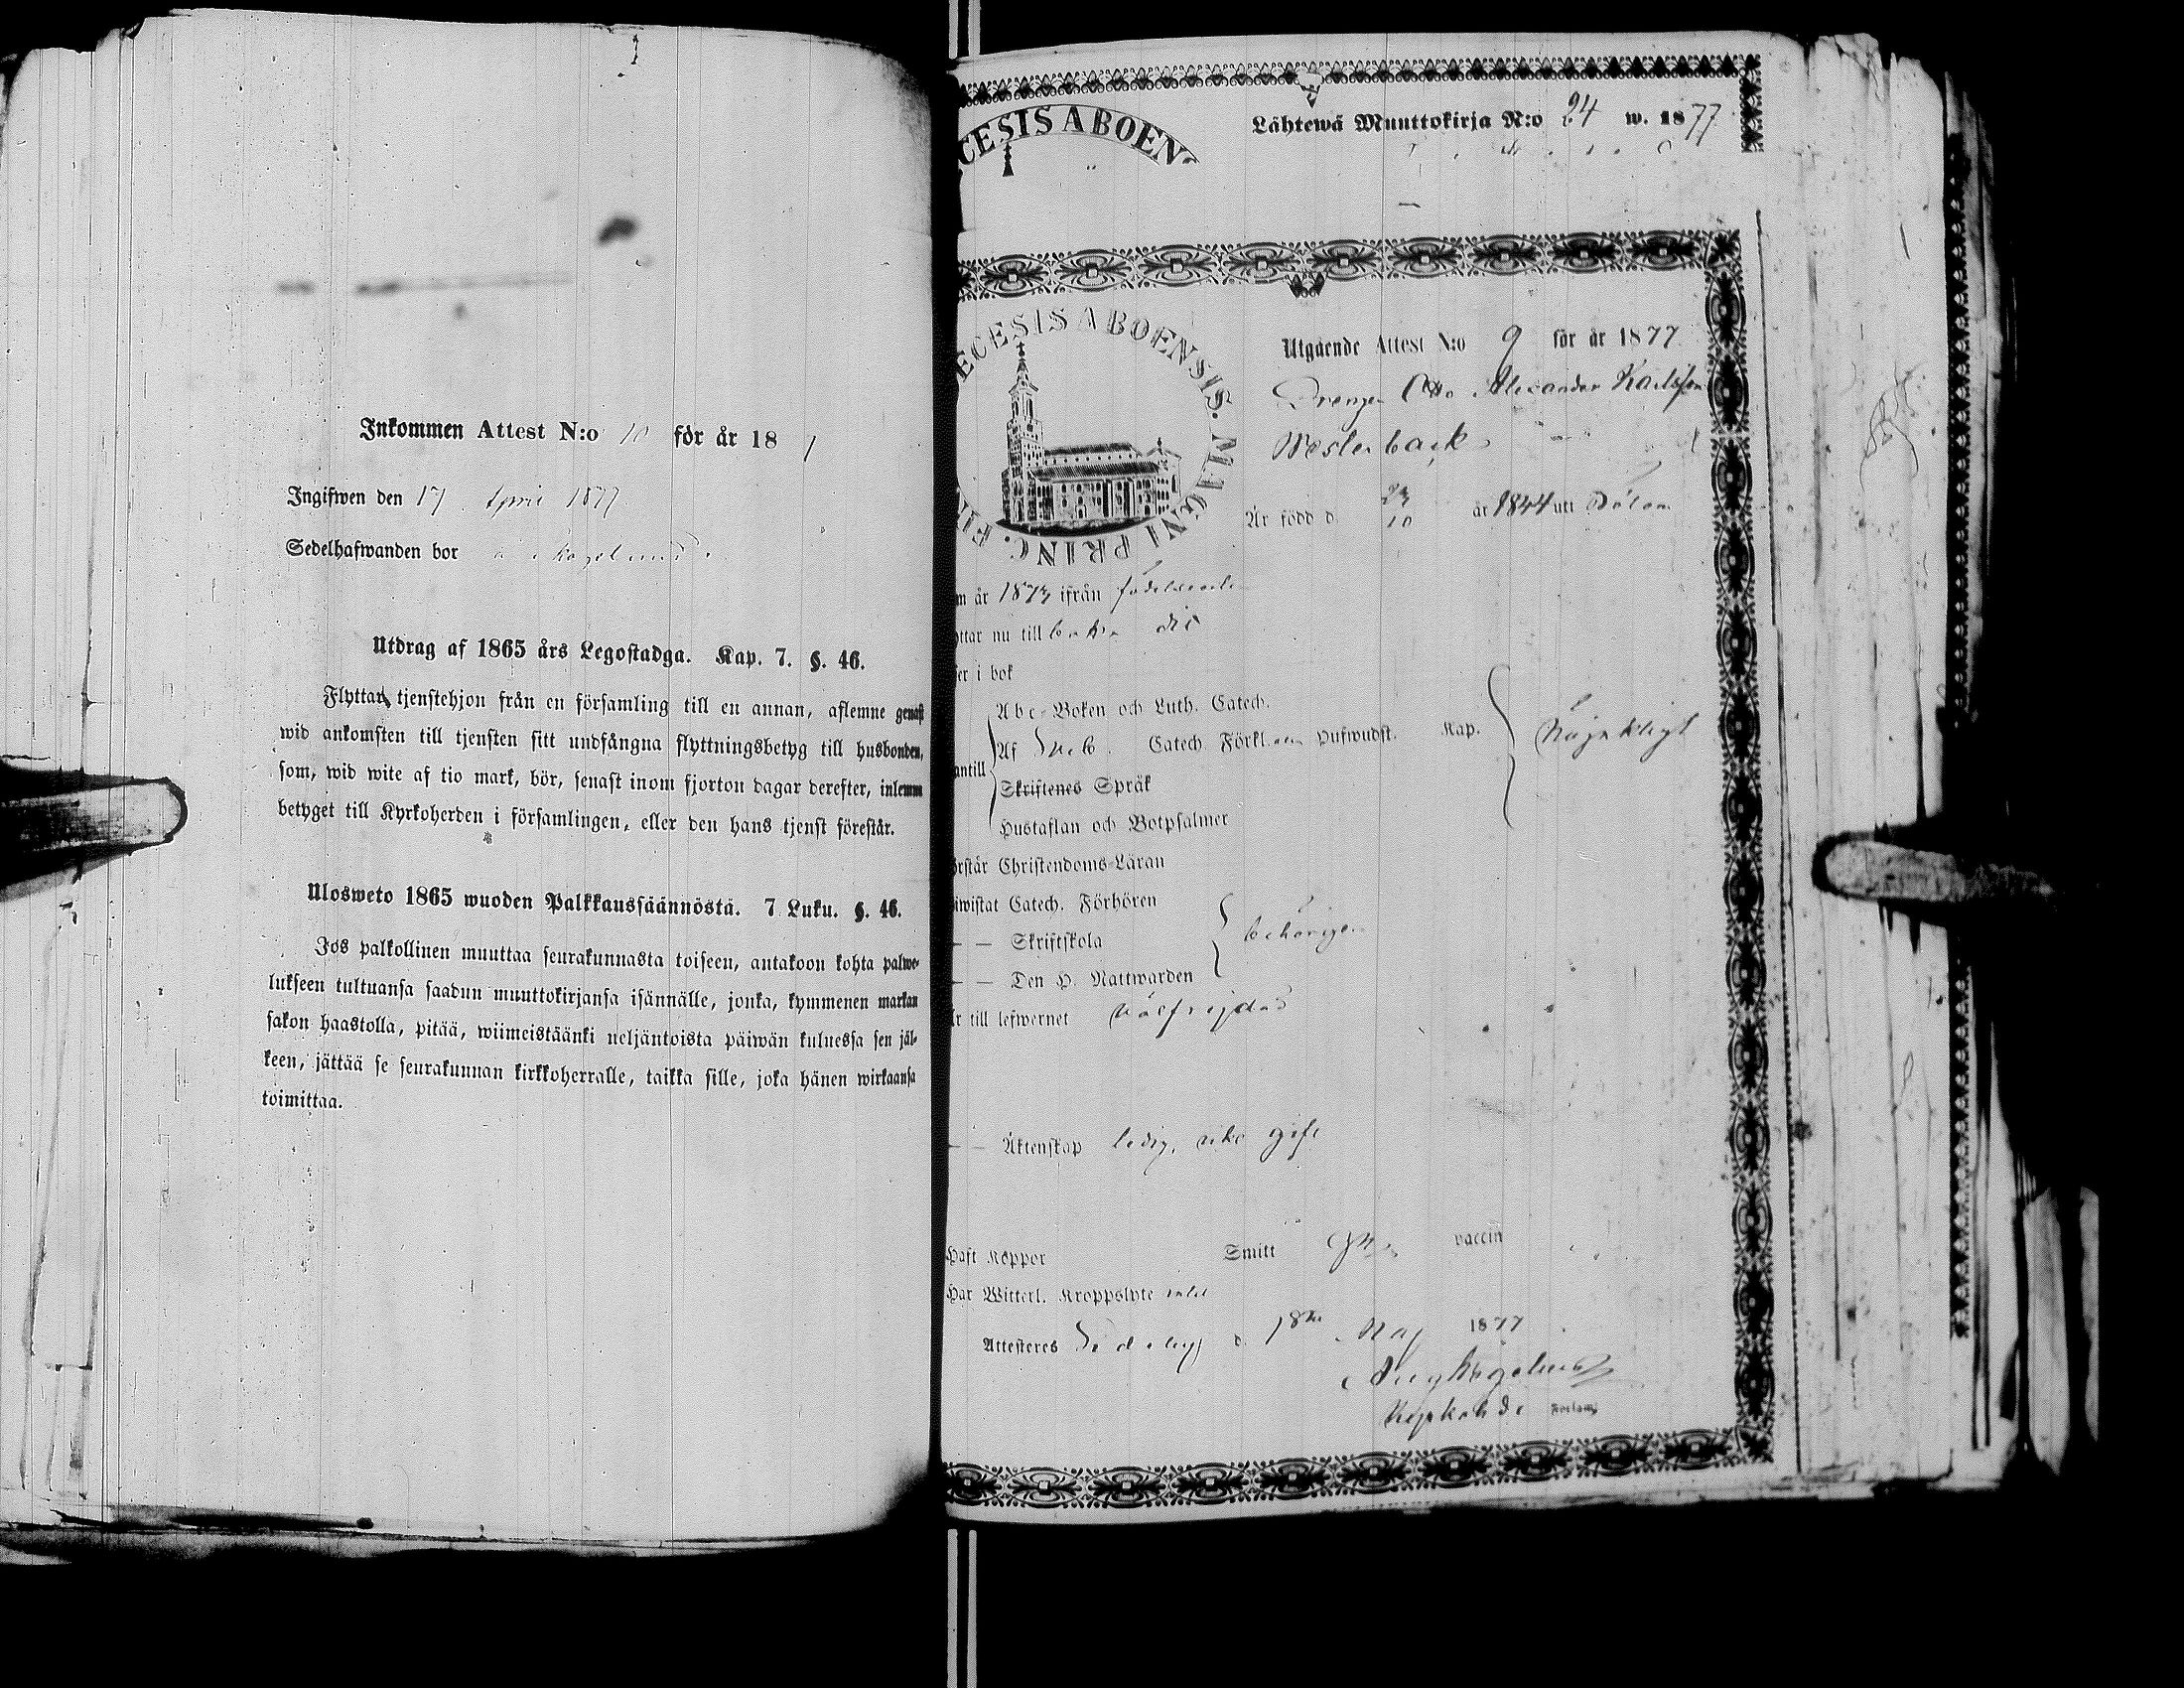 Inkommen Attest N:o 10 för år 18
Ingifwen den 17 April 1877
Sedelhafwanden bor
Utdrag af 1865 års Legostadga. Kap. 7. §. 46.
Flyttar tjenstehjon från en församling till en annan, aflemne genast
wid ankomsten till tjensten sitt undfångna flyttningsbetyg till husbonden,
som, wid wite af tio mark, bör, senast inom fjorton dagar derefter, inlemna
betyget till Kyrkoherden i församlingen, eller den hans tjenst förestår.
Ulosweto 1865 wuoden Palkkaussäännöstä. 7 Luku. §. 46.
Jos palkollinen muuttaa seurakunnasta toiseen, antakoon kohta palwe-
lukseen tultuansa saadun muuttokirjansa isännälle, jonka, kymmenen markan
sakon haastolla, pitää, wiimeistäänki neljäntoista päiwän kuluessa sen jäl-
keen, jättää se seurakunnan kirkkoherralle, taikka sille, joka hänen wirkaansa
toimittaa.
CESIS ABOEN
Lähtewä Muuttokirja N:o 24 w. 1877
ECESIS ABOENSIS. MAGNI PRINC. FI
Utgående Attest N:o 9 för år 1877
Drengen Otto Alexander Karlsson
Westerback
Är född d. 23/10 år 1844 uti
m år 1873 ifrån
ttar nu till baka dit
er i bok
Abc-Boken och Luth. Catech.
antill Af Catech. Förkl. Hufwudst. Kap. Nöjaktigt
Skriftenes Språk
Hustaflan och Botpsalmer
rstår Christendoms-Läran
iwistat Catech. Förhören
— — Skriftskola behörigen
— — Den H. Nattwarden
r till lefwernet välfrejdad
— — Äktenskap ledig, icke gift
Haft Koppor Smitt vaccin
Har Witterl. Kroppslyte intet
Attesteres d. 18de Maj 1877